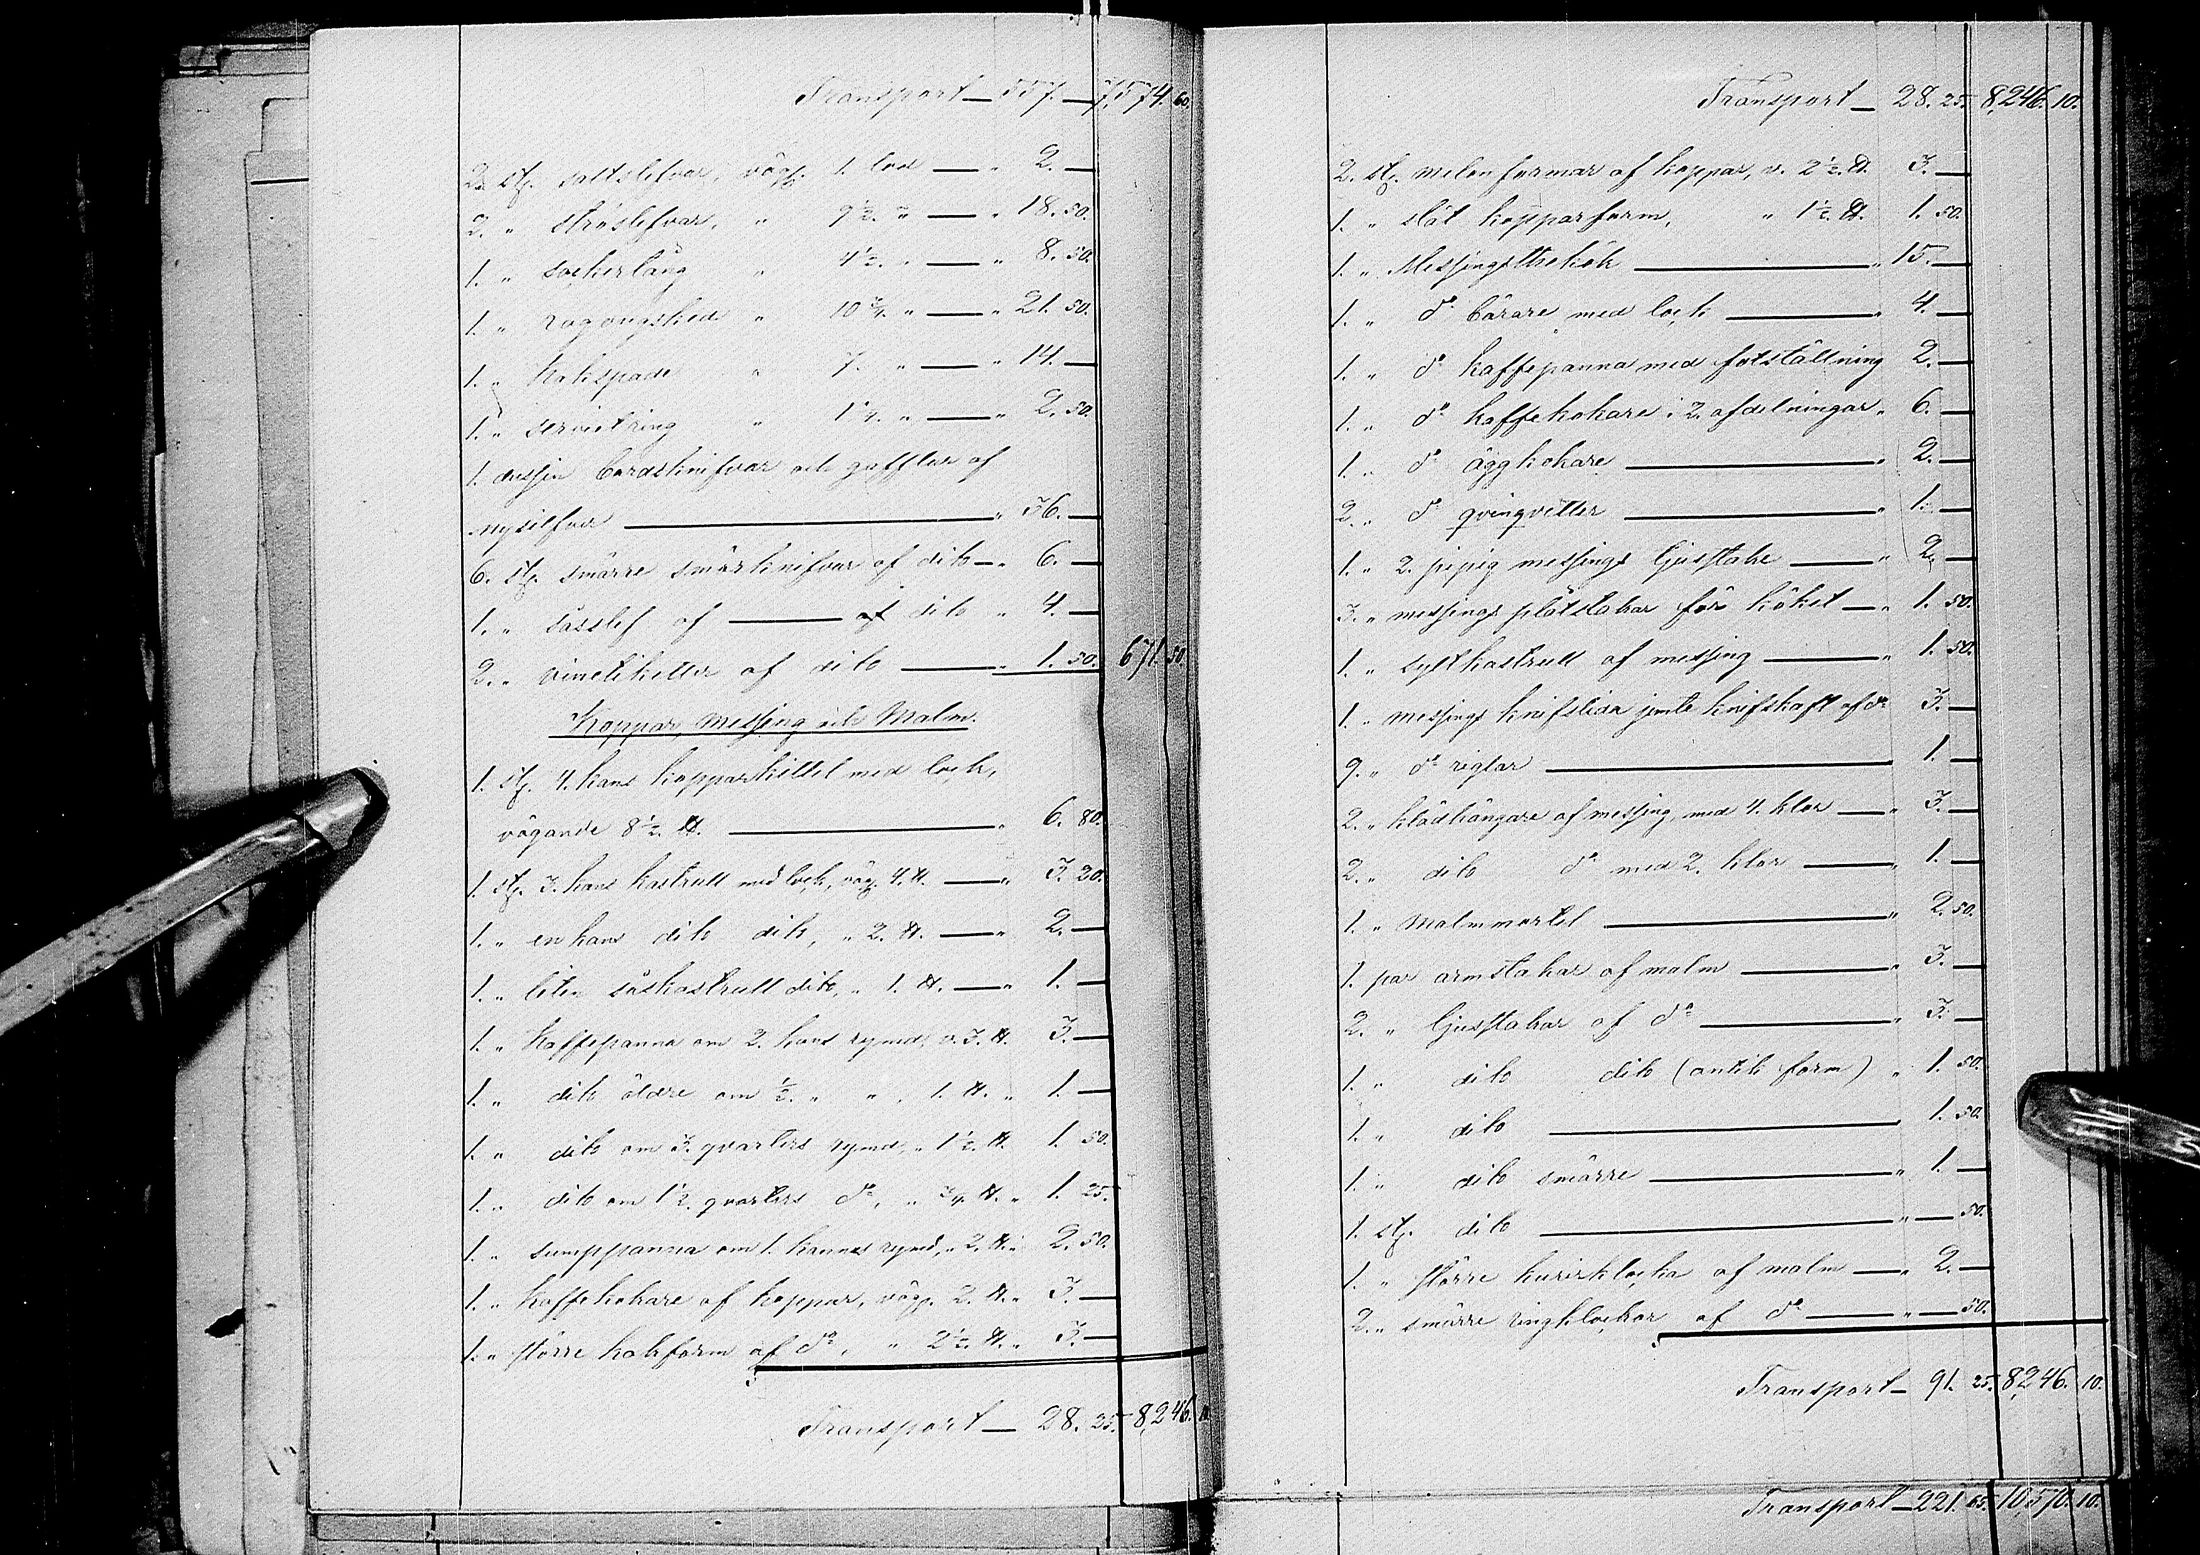 Transport — 557. — 7,574. 60.
2. st. saltslefvar, väg. 1. lod — „ 2. —
2. „ ströslefvar, „ 9 1/2. „ — „ 18. 50.
1. „ sockertång „ 4 1/2. „ — „ 8. 50.
1. „ ragougsked „ 10 3/4. „ — „ 21. 50.
1. „ kakspade „ 7. „ — „ 14. —
1. „ servietring „ 1 1/4. „ — „ 2. 50.
1. dussin bordsknifvar och gafflar af
nysilfver — „ 36. —
6. st. smärre smörknifvar af dito — „ 6. —
1. „ såsslef af — af dito „ 4. —
2. „ vinetiketter af dito — „ 1. 50. 671. 50
Koppar, Messing och Malm.
1. st. 4. kans kopparkittel med lock,
vägande 8 1/2. ℔. — „ 6. 80.
1. st. 3. kans kastrull med lock, väg. 4. ℔. — „ 3. 20.
1. „ en kans dito dito, „ 2. ℔. — „ 2. —
1. „ liten såskastrull dito, „ 1. ℔. — „ 1. —
1. „ Kaffepanna om 2. kans rymd, v. 3. ℔. 3. —
1. „ dito äldre om 1/2. „ „ , 1. ℔. „ 1. —
1. „ dito om 3. qvarters rymd, „ 1 1/2. ℔. 1. 50.
1. „ dito om 1 1/2. qvarters do, „ 3/4. ℔. „ 1. 25.
1. „ sumppanna om 1. kannas rymd, „ 2. ℔. „ 2. 50.
1. „ Kaffekokare af koppar, väg. 2. ℔. „ 3. —
1. „ större kakform af do, „ 2 1/2. ℔. „ 3. —
Transport — 28. 25. 8,246. 10.
Transport — 28. 25. 8,246. 10.
2. st. melonformar af koppar, v. 2 1/2. ℔. 3. —
1. „ slät kopparform, „ 1 1/2. ℔. 1. 50.
1. „ Messingsthekök — „ 15. —
1. „ do bärare med lock — „ 4. —
1. „ do kaffepanna med fotställning 2. —
1. „ do kaffekokare i 2. afdelningar „ 6. —
1. „ do äggkokare — „ 2. —
2. „ do qvingvetter — „ 1. —
1. „ 2. pipig messings ljusstake — „ 2. —
3. „ messings plåtstakar för köket — „ 1. 50.
1. „ syltkastrull af messing — „ 1. 50.
1. „ messings knifslida jemte knifskaft af do 3. —
9. „ do reglar — 1. —
2. „ klädhängare af messing, med 4. klor — „ 3. —
2. „ dito do med 2. klor — „ 1. —
1. „ Malmmortel — „ 2. 50.
1. par armstakar af malm — „ 3. —
2. „ ljusstakar af do — „ 3. —
1. „ dito dito (antik form) „ 1. 50.
1. „ dito — 1. 50.
1. „ dito smärre — „ 1. —
1. st. dito — „ — 50.
1. „ större kurirklocka af malm — „ 2. —
2. „ smärre ringklockor af do — „ — 50.
Transport — 91. 25. 8,246. 10.
Transport — 221. 65. 10,570. 10.